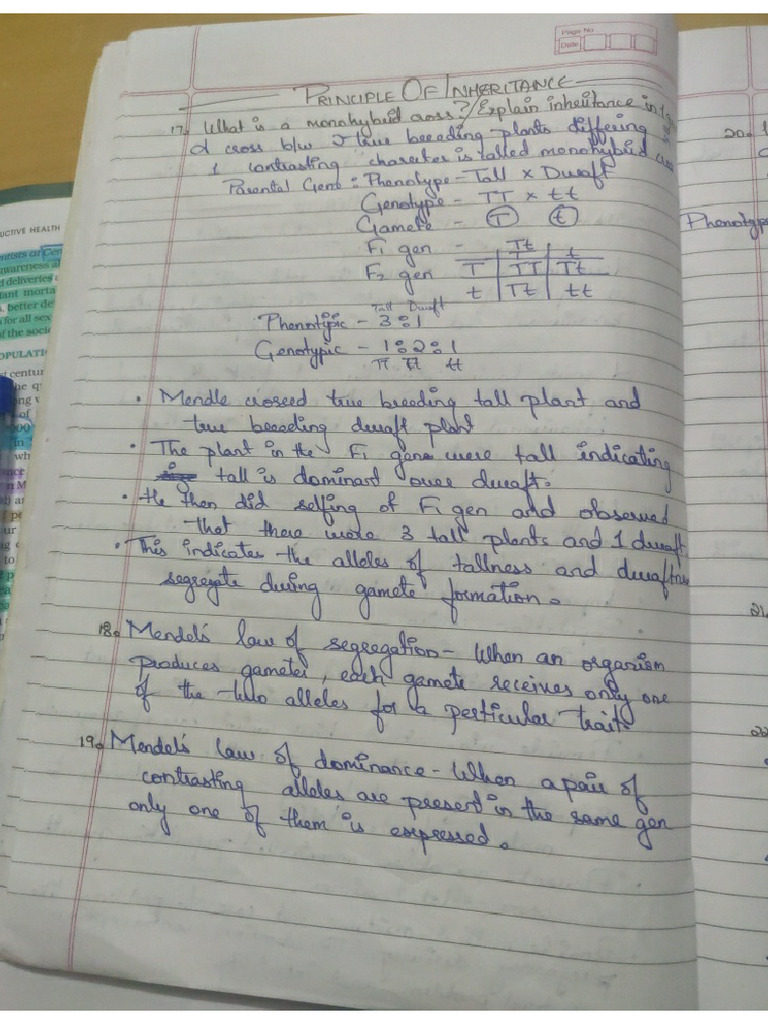 Page No
Date
PRINCIPLE OF INHERITANCE
17. What is a monohybrid cross? / Explain inheritance in 1 gene
A cross b/w 2 true breeding plants differing in
1 contrasting character is called monohybrid cross
Parental Gend : Phenotype - Tall × Dwarf
Genotype - TT × tt
Gamete - T t
F1 gen - Tt
F2 gen T t
T TT Tt
t Tt tt
Tall Dwarf
Phenotypic - 3:1
Genotypic - 1:2:1
TT Tt tt
• Mendle crossed true breeding tall plant and
true breeding dwarf plant
• The plant in the F1 gene were tall indicating
tall is dominant over dwarf.
• He then did selfing of F1 gen and observed
that there were 3 tall plants and 1 dwarf.
• This indicates the alleles of tallness and dwarfness
segregate during gamete formation.
18. Mendel's law of segregation - When an organism
produces gametes, each gamete receives only one
of the two alleles for a perticular trait.
19. Mendel's law of dominance - When a pair of
contrasting alleles are present in the same gen
only one of them is expressed.
20.
Phenotype
21.
22.
UCTIVE HEALTH
entists at Cen
awareness a
d deliveries
tant morta
better de
for all sex
of the socie
OPULATI
t centur
he q
ong
of
000
in
wh